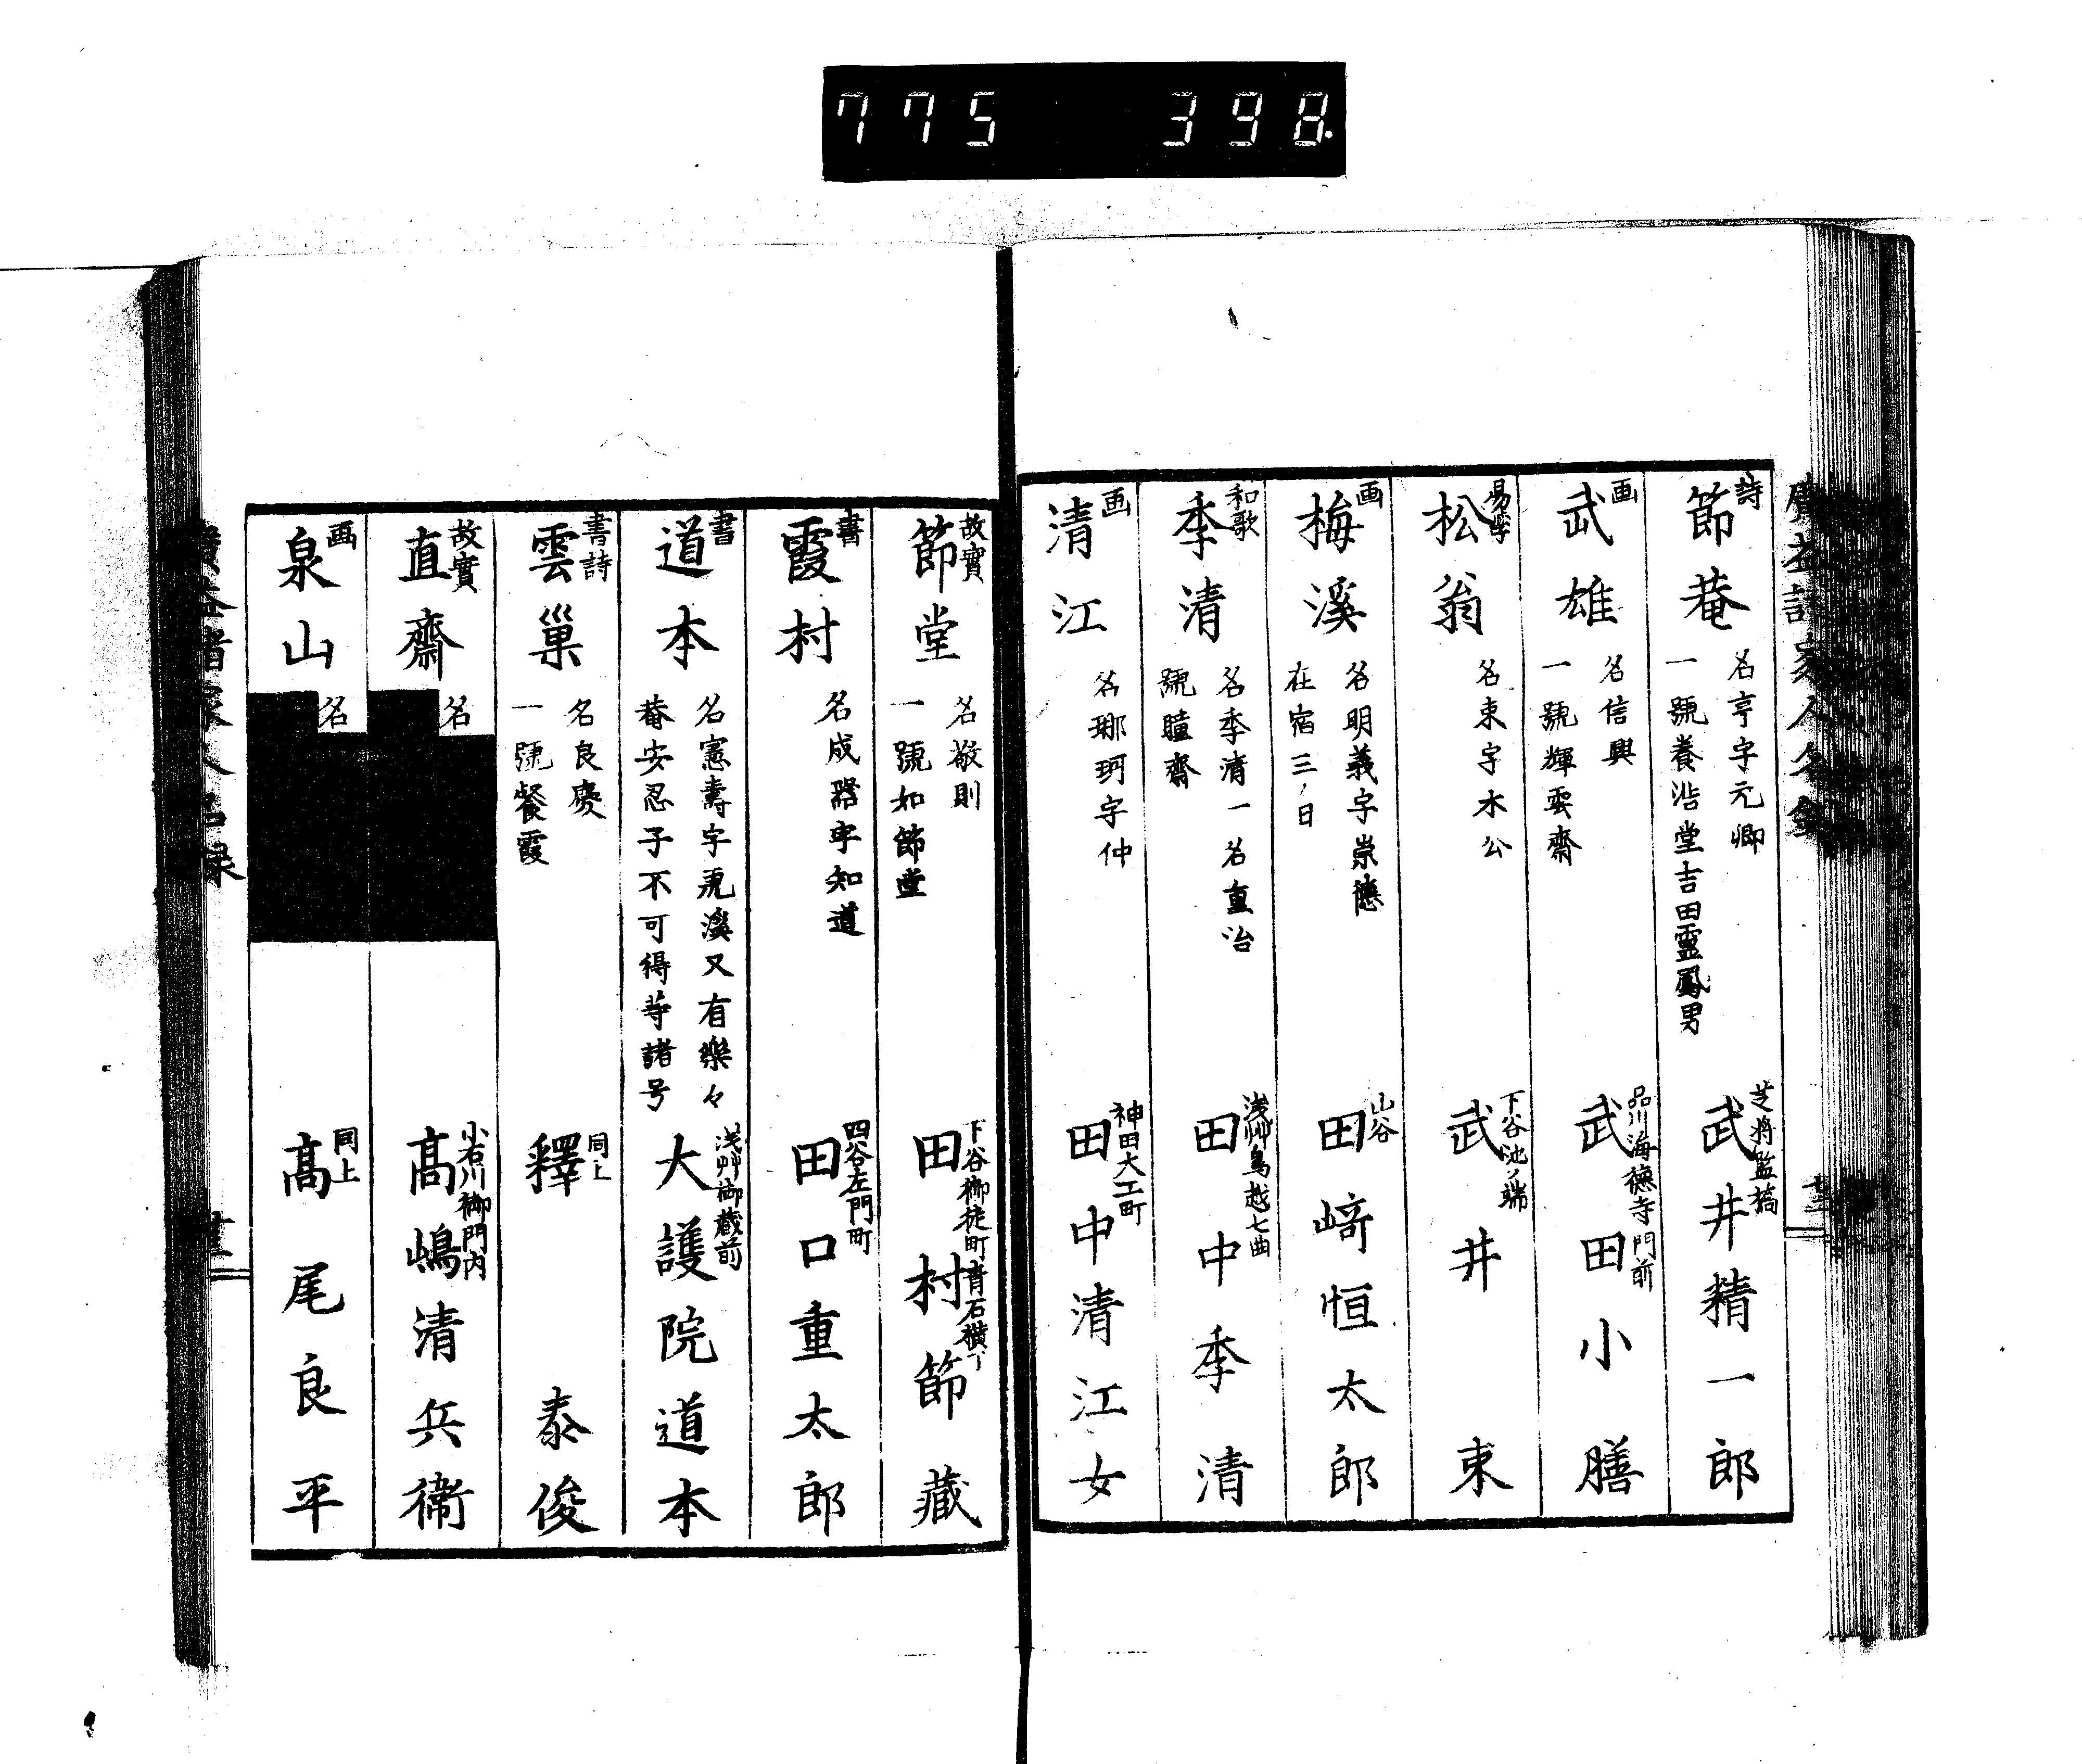 775 398
詩
節菴
名亨字元卿
一號養浩堂吉田靈鳳男
芝将監橋
武井精一郎
画
武雄
名信興
一號輝雲齋
品川海德寺門前
武田小膳
易學
松翁
名東字木公
下谷池ノ端
武井東
画
梅溪
名明義字崇德
在宿三ノ日
山谷
田﨑恒太郎
和歌
季清
名季清一名重治
號瞳齋
浅艸鳥越七曲
田中季清
画
清江
名瑯玕字仲
神田大工町
田中清江女
故實
節堂
名敬則
一號如節堂
下谷御徒町青石横丁
田村節藏
書
霞村
名成器字知道
四谷左門町
田口重太郎
書
道本
名憲壽字乕溪又有樂々
菴安忍子不可得等諸号
浅艸御蔵前
大護院道本
書詩
雲巢
名良慶
一號餐霞
同上
釋泰俊
故實
直齋
名
小石川御門内
髙嶋清兵衛
画
泉山
名
同上
髙尾良平
廣益諸家人名録